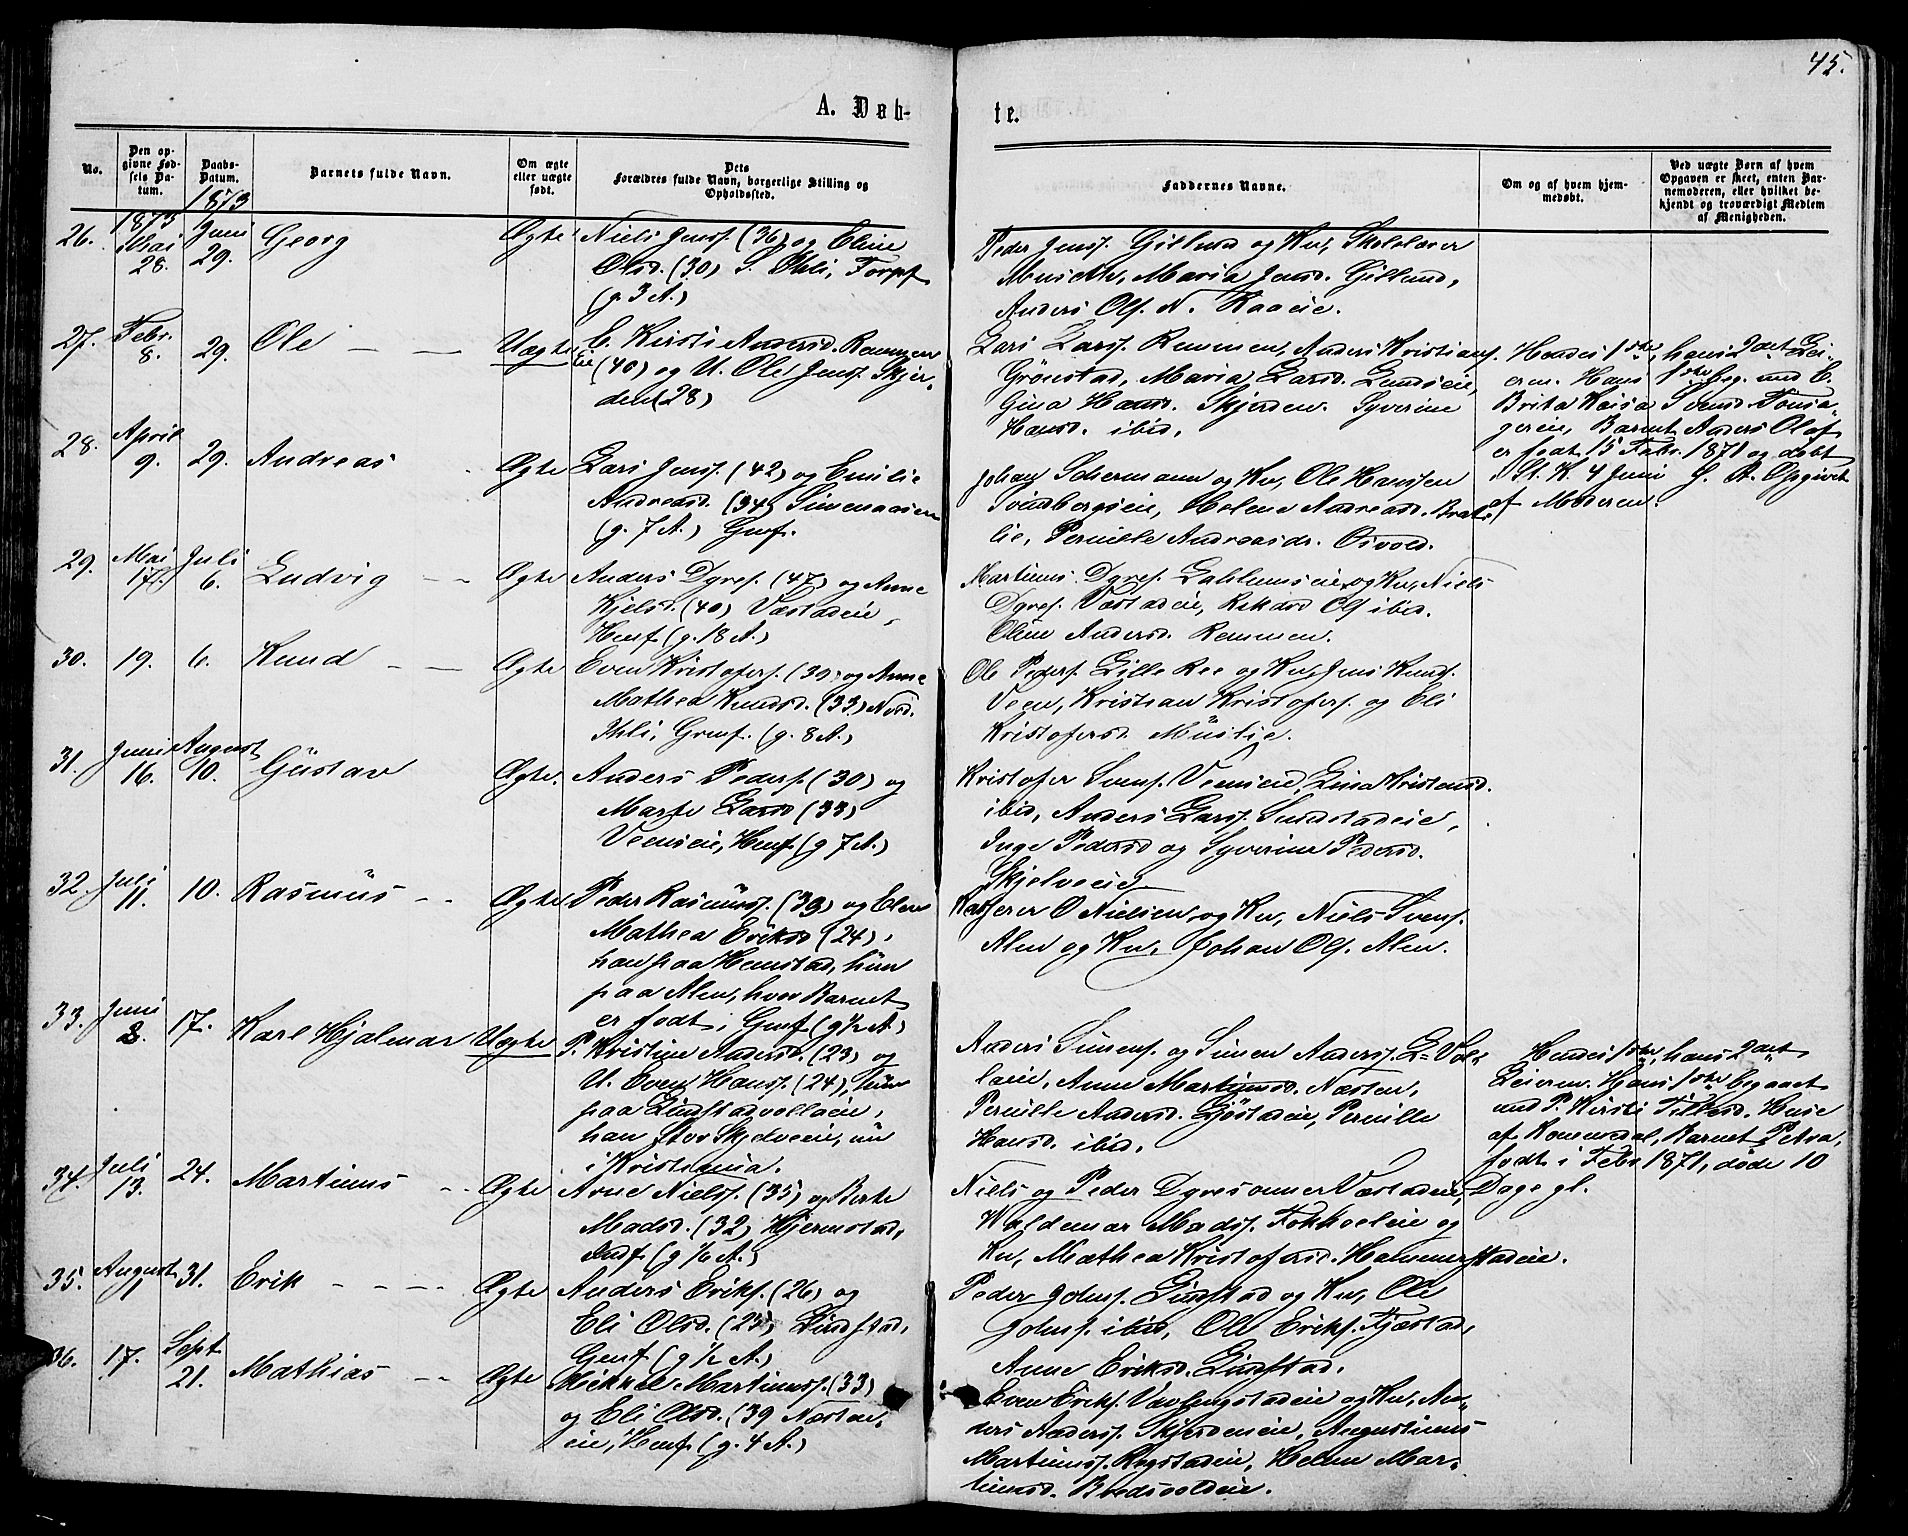 45.
A. Døb-
te.
No.
Den op-
givne Fød-
sels Da-
tum.
Daabs-
Datum.
Barnets fulde Navn.
Om ægte
eller uægte
født.
Dets
Forældres fulde Navn, borgerlige Stilling og
Opholdssted.
Faddernes Navne.
Om og af hvem hjem-
medøbt.
Ved uægte Børn af hvem
Opgaven er skeet, enten Bar-
nemoderen, eller hvilket be-
kjendt og troværdigt Medlem
af Menigheden.
1873
1873
26. Mai 28. Juni 29. Georg Ægte Niels Jenss. (36) og Eline
Olsd. (30) S. Ihli, Torpf.
(g. 3 A.)
Peder Jenss. Gillund og Ku, Skolelærer
Maria Jensd. Gillund,
Anders Ols. N. Raaeie.
27. Febr. 8. 29. Ole Uægte E. Kirsti Andersd. Remmen
Eie (40) og U. Ole Jenss. Skjer-
den (28)
Lars Larss. Remmen, Anders Kristians.
Grönstad, Maria Larsd. Lundseie,
Gina Hansd. Skjerden. Syverine
Hansd. ibid.
Hendes 1ste, hans 2det Lei-
erm. Hans 1ste beg. med E.
Brita Kaisa Svensd. Tonsa-
gereie, Barnet Anders Olaf
er født 15 Febr. 1871 og døbt
i St. K. 4 Juni S. A. Opgivet
af Moderen.
28. April 9. 29. Andreas Ægte Lars Jenss. (42) og Emilie
Andreasd. (34) Simenaasen
(g. 7 A.) Grnf.
Johan Schermann og Ku, Ole Hanssen
Svindbergseie, Helene Andreasd. Brate-
lie, Pernille Andreasdr. Osvold.
29. Mai 17. Juli 6. Ludvig Ægte Anders Dyres. (47) og Anne
Kjelsd. (40) Væstadeie,
Hemf. (g. 18 A.)
Martinus Dyres. Lablumseie og Ku, Niels
Dyres. Væstadeie, Rikard Ols. ibid.
Oline Andersd. Remmen.
30. 19. 6. Knud Ægte Even Kristofers. (30) og Anne
Mathea Knudsd. (33) Nord.
Ihli, Grnf. (g. 8 A.)
Ole Peders. Lille Ree og Ku, Jens Knuds.
Veen, Kristian Kristofers. og Eli
Kristofersd. Muslie.
31. Juni 16. August 10. Gustav Ægte. Anders Peders. (30) og
Marte Larsd (33)
Veenseie, Hemf. (g 7 A.)
Kristofer Svens. Veenseie, Lina Kristensd.
ibid, Anders Larss. Sundstadeie,
Inge Pedersd og Syverine Pedersd.
Skjelveeie
32. Juli 11. 10. Rasmus Ægte Peder Rasmuss. (39) og Elen
Mathea Eriksd (24),
han paa Hemstad, hun
paa Alm, hvor Barnet
er født, i Grnf. (g ½ A.)
Kasserer O Nielsen og Ku, Niels Svens.
Alm og Ku, Johan Ols. Alm.
33. Juni 3. 17. Karl Hjalmar Uægte P. Kristine Andersd. (23) og
U. Even Hanss. (24), hun
paa Lindstadvollaeie,
han Stor Skjelveeie, nu
i Kristiania.
Anders Simens. og Simen Anderss. L-Vol-
laeie, Anne Martinusd. Næsten,
Pernille Andersd. Gjøstadeie, Pernille
Hansd. ibid.
Hendes 1ste, hans 2det
Leierm. Hans 1ste begaaet
med P. Kirsti Tillesd. Huse
af Romedal, Barnet Petra,
født i Febr 1871, døde 10
Dage gl.
34. Juli 13. 24. Martinus Ægte Arne Nielss. (35) og Berte
Madsd. (32) Hjermstad,
Andf. (g 1/6 A.)
Niels og Peder Dyresønner Væstadeie,
Waldemar Madss. Fokholeie og
Ku, Mathea Kristofersd. Hammerstadeie.
35. August 1. 31. Erik Ægte Anders Eriks. (26) og
Eli Olsd. (23) Lindstad,
Grnf. (g ½ A.)
Peder Johns. Lindstad og Ku, Ole
Johns. ibid, Ole Eriks. Fjæstad,
Anne Eriksd. Lindstad.
36. 17. Sept. 21. Mathias Ægte Mikkel Martinuss. (33)
og Eli Olsd. (39 Næsten-
eie, Hemf. (g. 4 A.)
Even Eriks. Vavlingstadeie og Ku, An-
ders Anderss. Skjerdeneie, Augustinus
Martinuss. Rogstadeie, Helene Mar-
tinusd. Bredvoldeie.